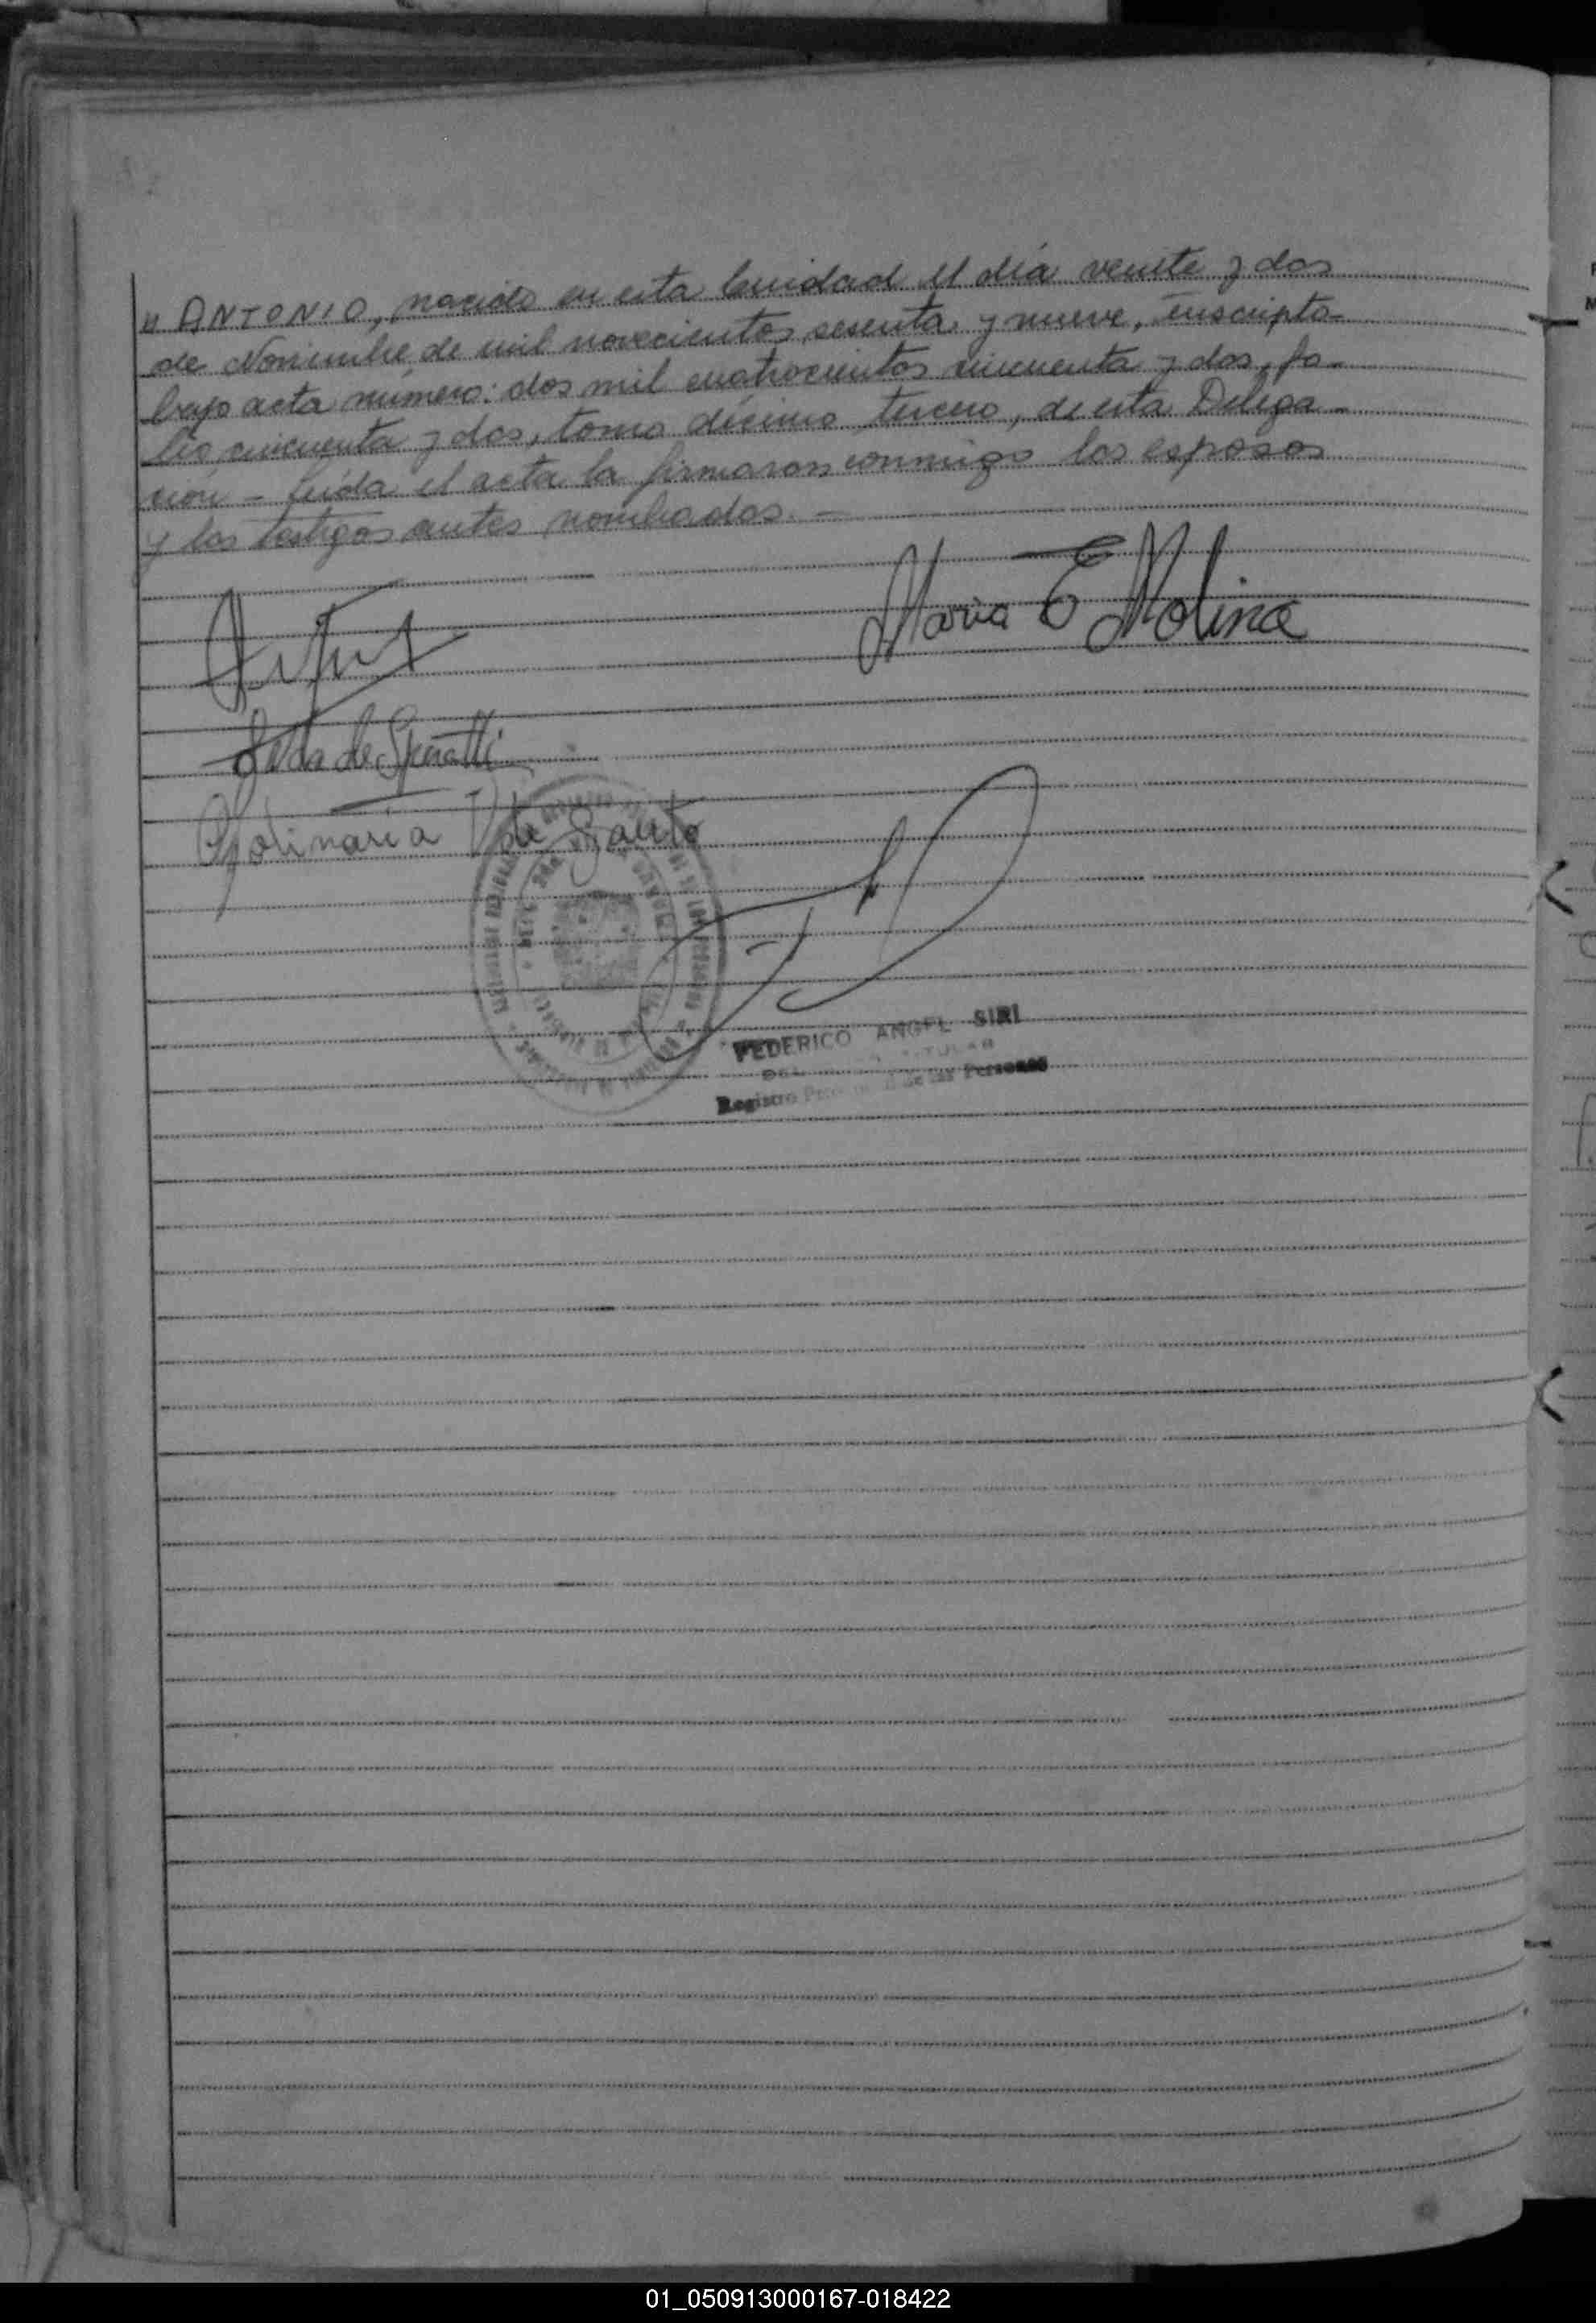 " ANTONIO, nacido en esta ciudad el día veinte y dos
de Noviembre de mil novecientos sesenta y nueve, inscripto
bajo acta número: dos mil cuatrocientos cincuenta y dos, fo-
lio cincuenta y dos, tomo décimo tercero, de esta Delega-
ción - Leída el acta la firmaron conmigo los esposos
y los testigos antes nombrados. -
Maria E Molina
de
Apolinaria V de Sauto
FEDERICO ANGEL SIRI
Registro de las Personas
01_050913000167-018422